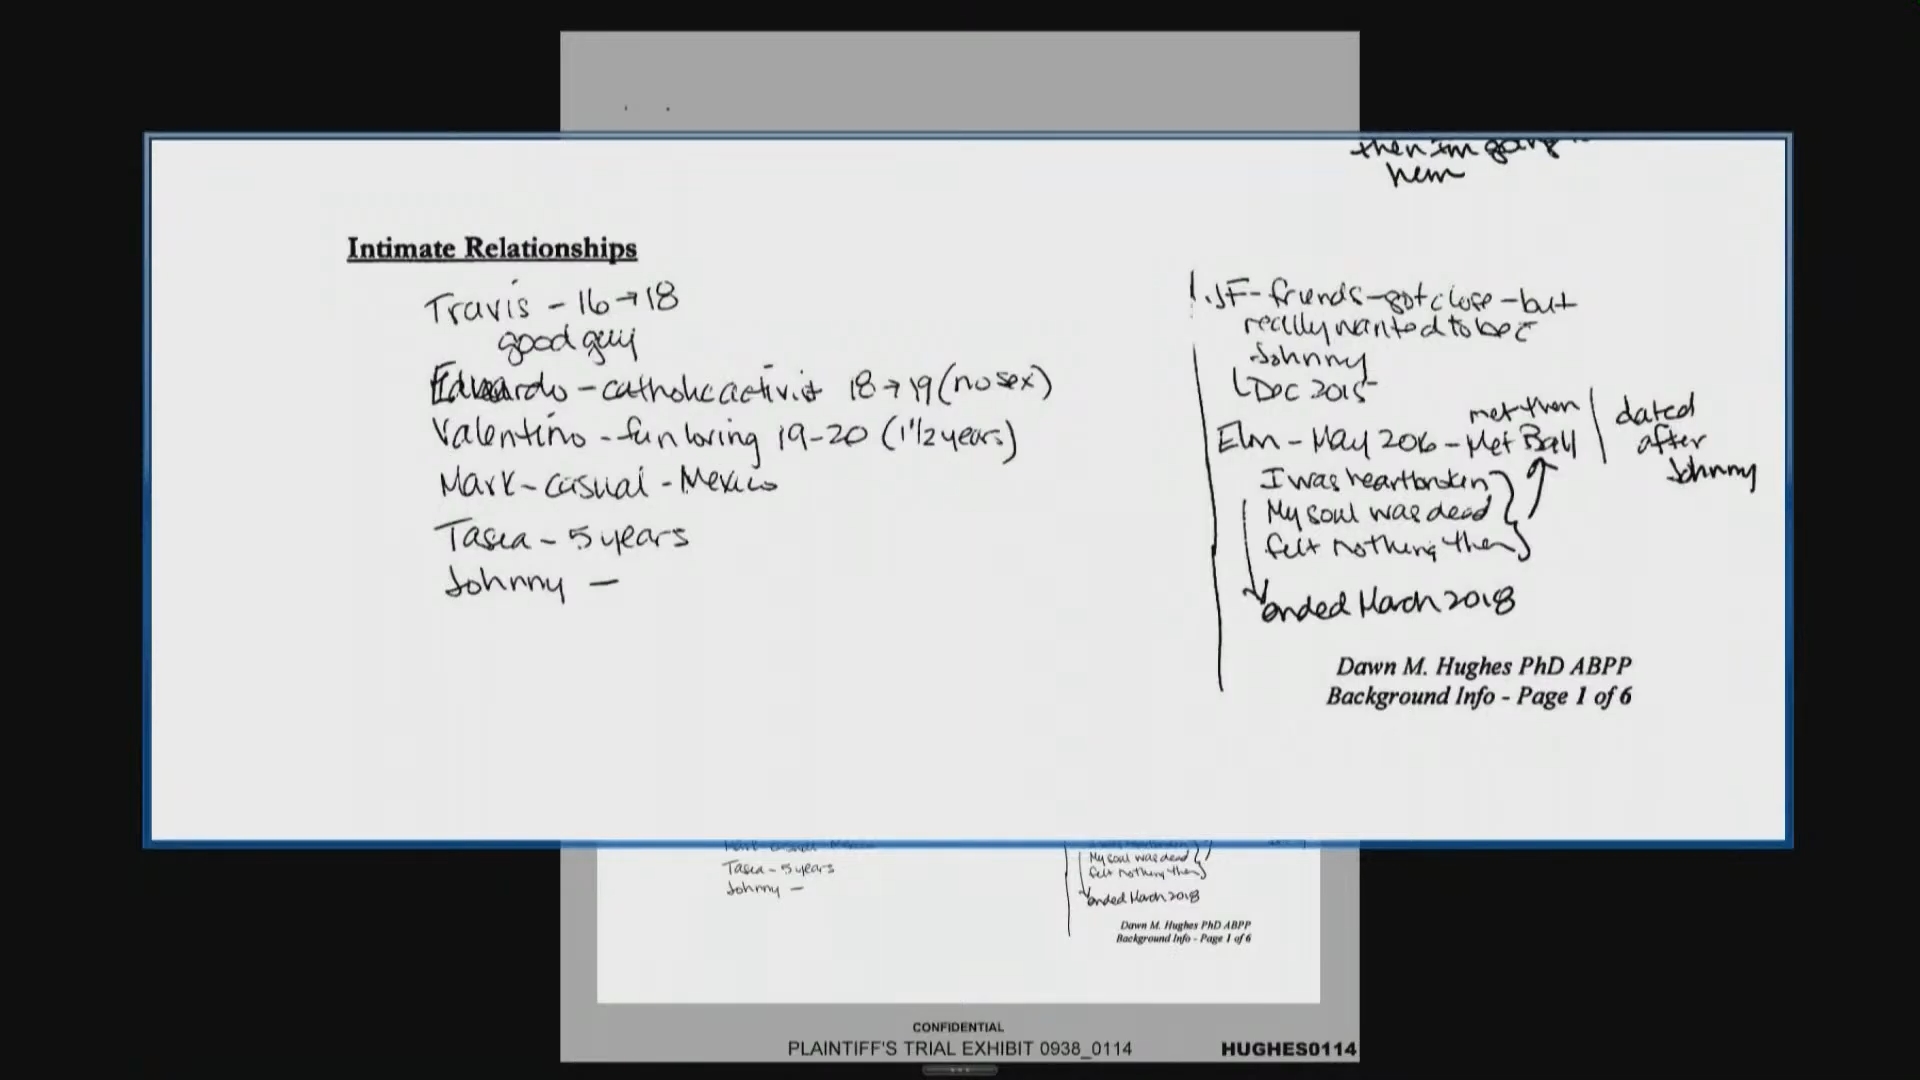 then im going
hem
Intimate Relationships
Travis - 16→18
good guy
Eduardo - catholic activist 18→19 (no sex)
Valentino - fun loving 19-20 (1 1/2 years)
Mark - casual - Mexico
Tasea - 5 years
Johnny —
JF - friends - got close - but
really wanted to be c̄
Johnny
Dec 2015
met then
Elon - May 2016 - Met Ball
I was heartbroken
My soul was dead
felt nothing then
ended March 2018
dated
after
Johnny
Dawn M. Hughes PhD ABPP
Background Info - Page 1 of 6
Tasea - 5 years
Johnny —
My soul was dead
felt nothing then
ended March 2018
Dawn M. Hughes PhD ABPP
Background Info - Page 1 of 6
CONFIDENTIAL
PLAINTIFF'S TRIAL EXHIBIT 0938_0114
HUGHES0114